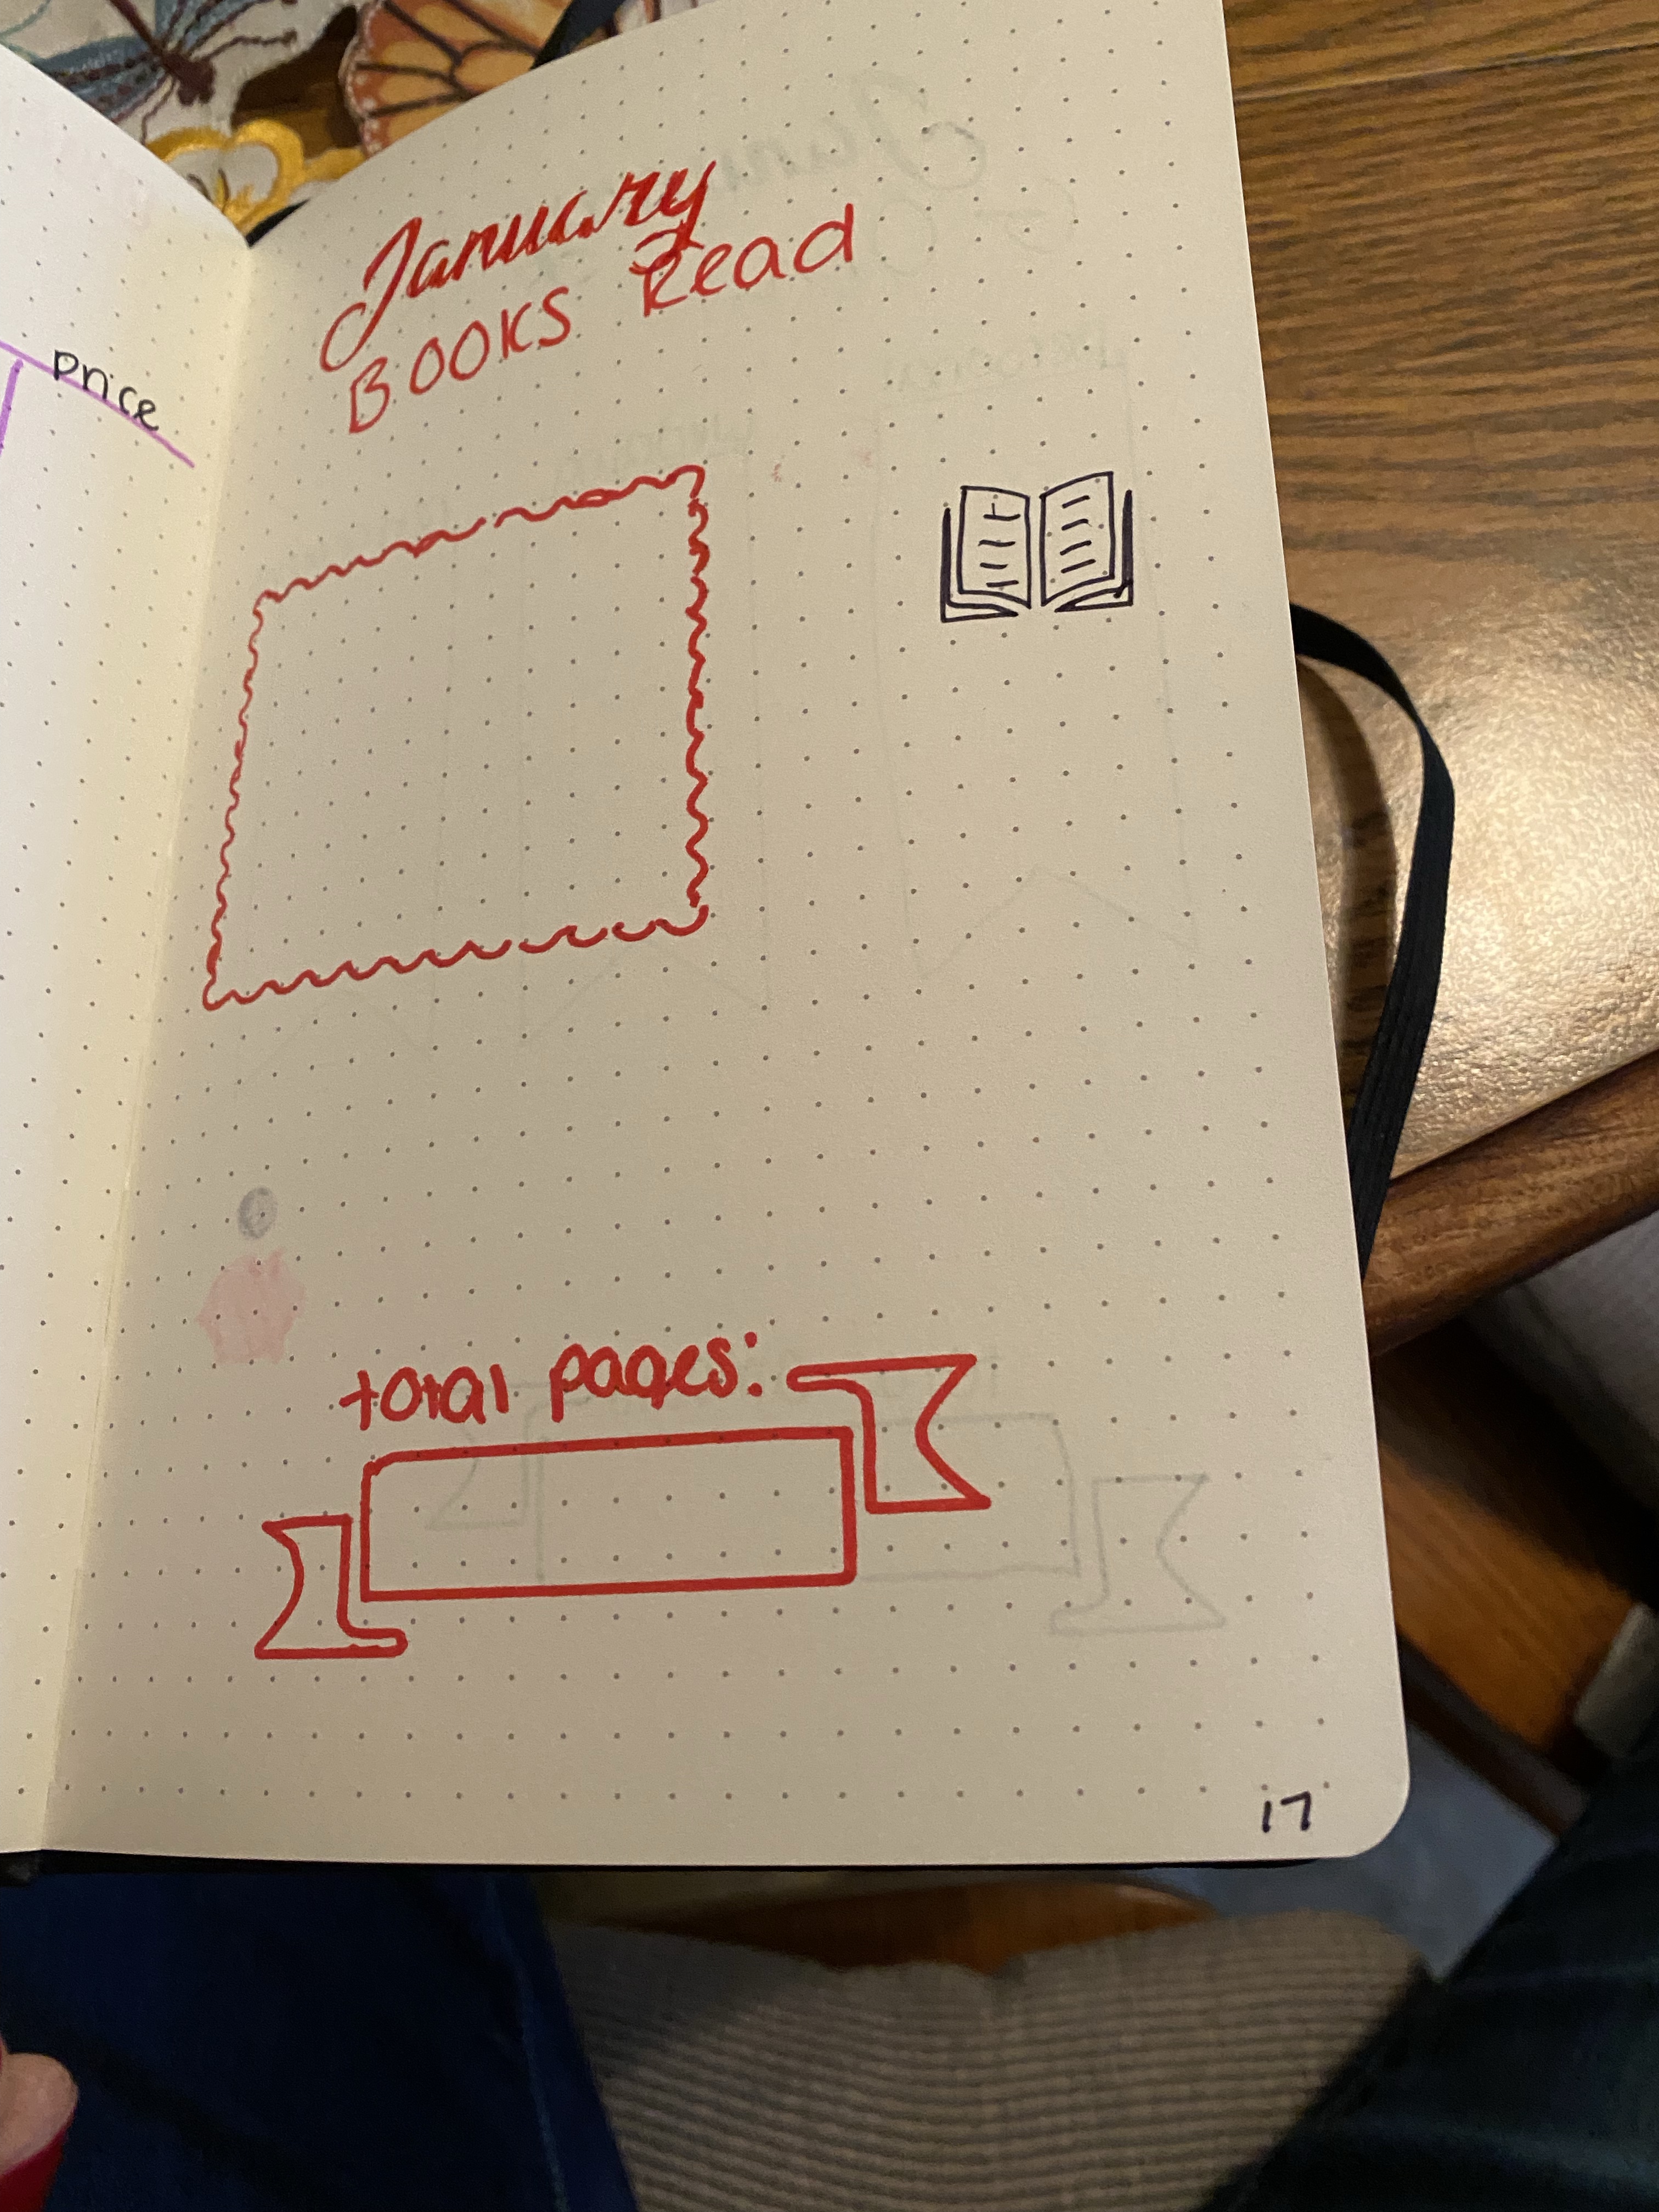 Price
January
BOOKS Read
total pages:
17